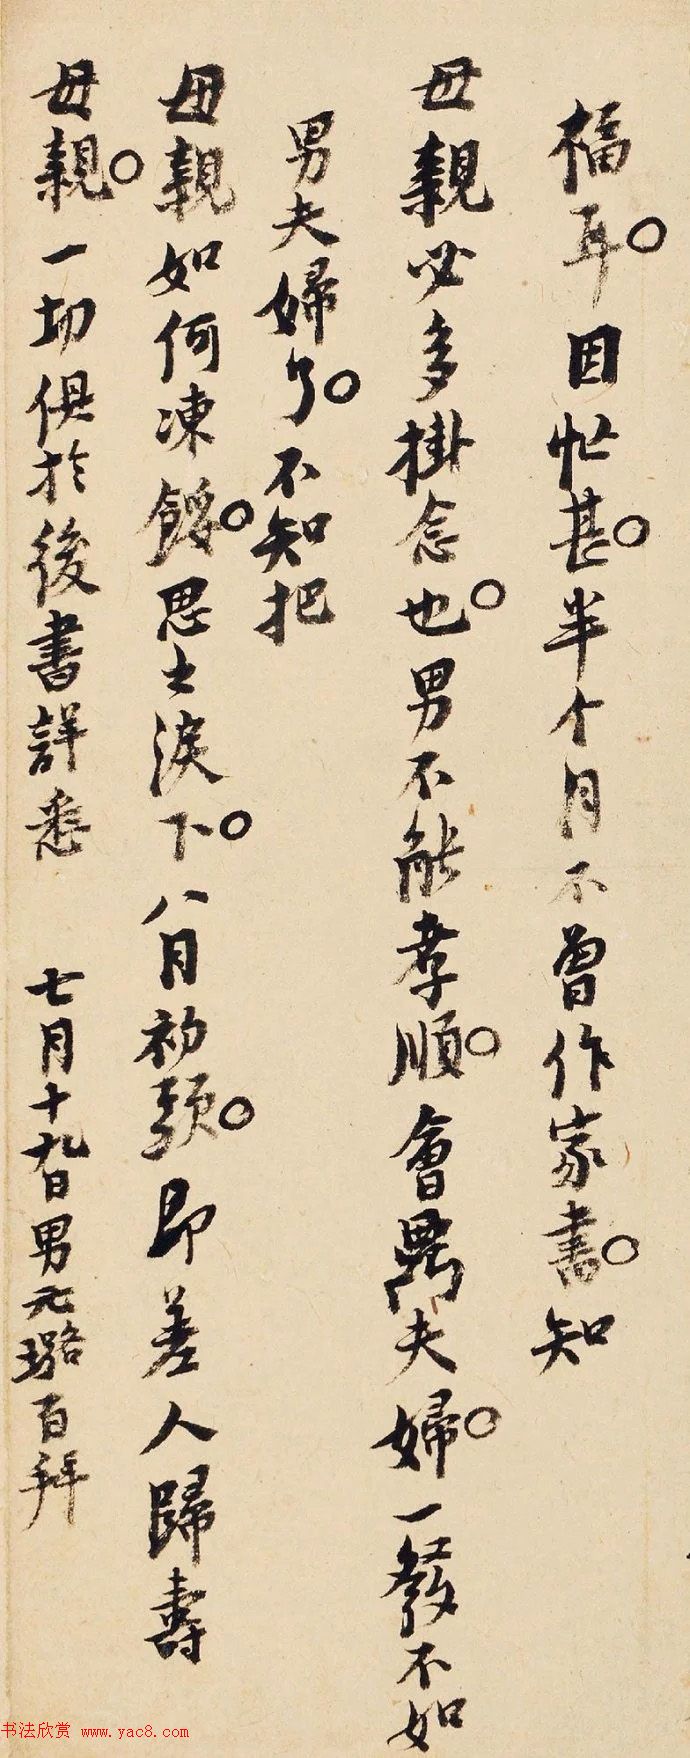 福耳。因忙甚。半个月不曾作家書。知
母親必多掛念也。男不能孝順。會鼎夫婦。一發不如
男夫婦了。不知把
母親如何凍餒。思之淚下。八月初頭。即差人歸壽
母親。一切俱於後書詳悉 七月十九日男元璐百拜
书法欣赏 www.yac8.com